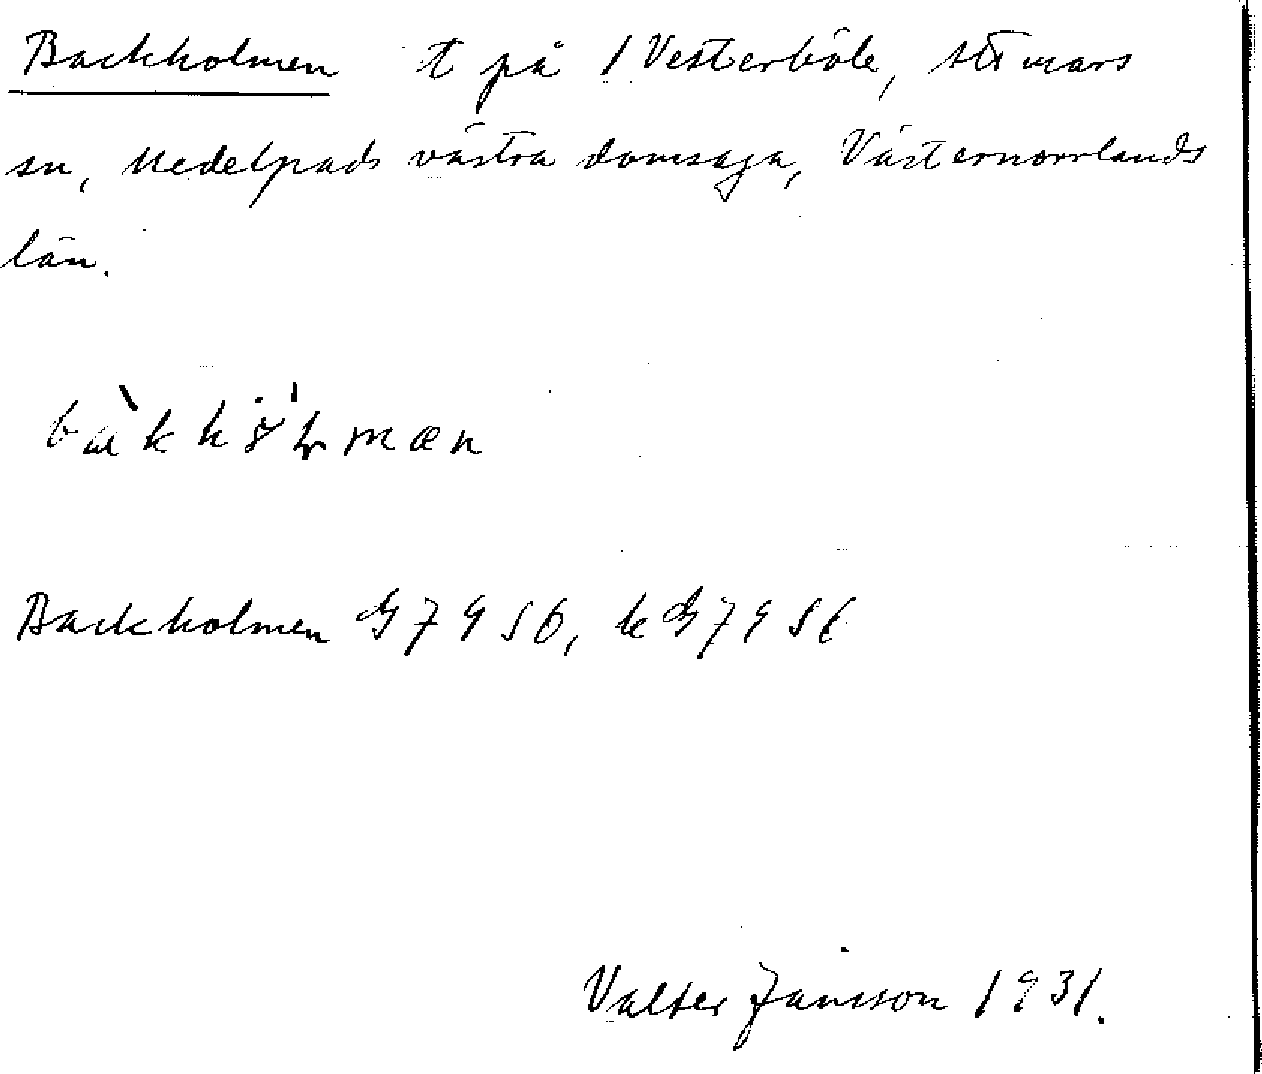 Backholmen t på 1 Vesterböle, Attmars
sn, Medelpads västra domsaga, Västernorrlands
län.
Backholmen G7956, kG7956
Valter Jansson 1931.